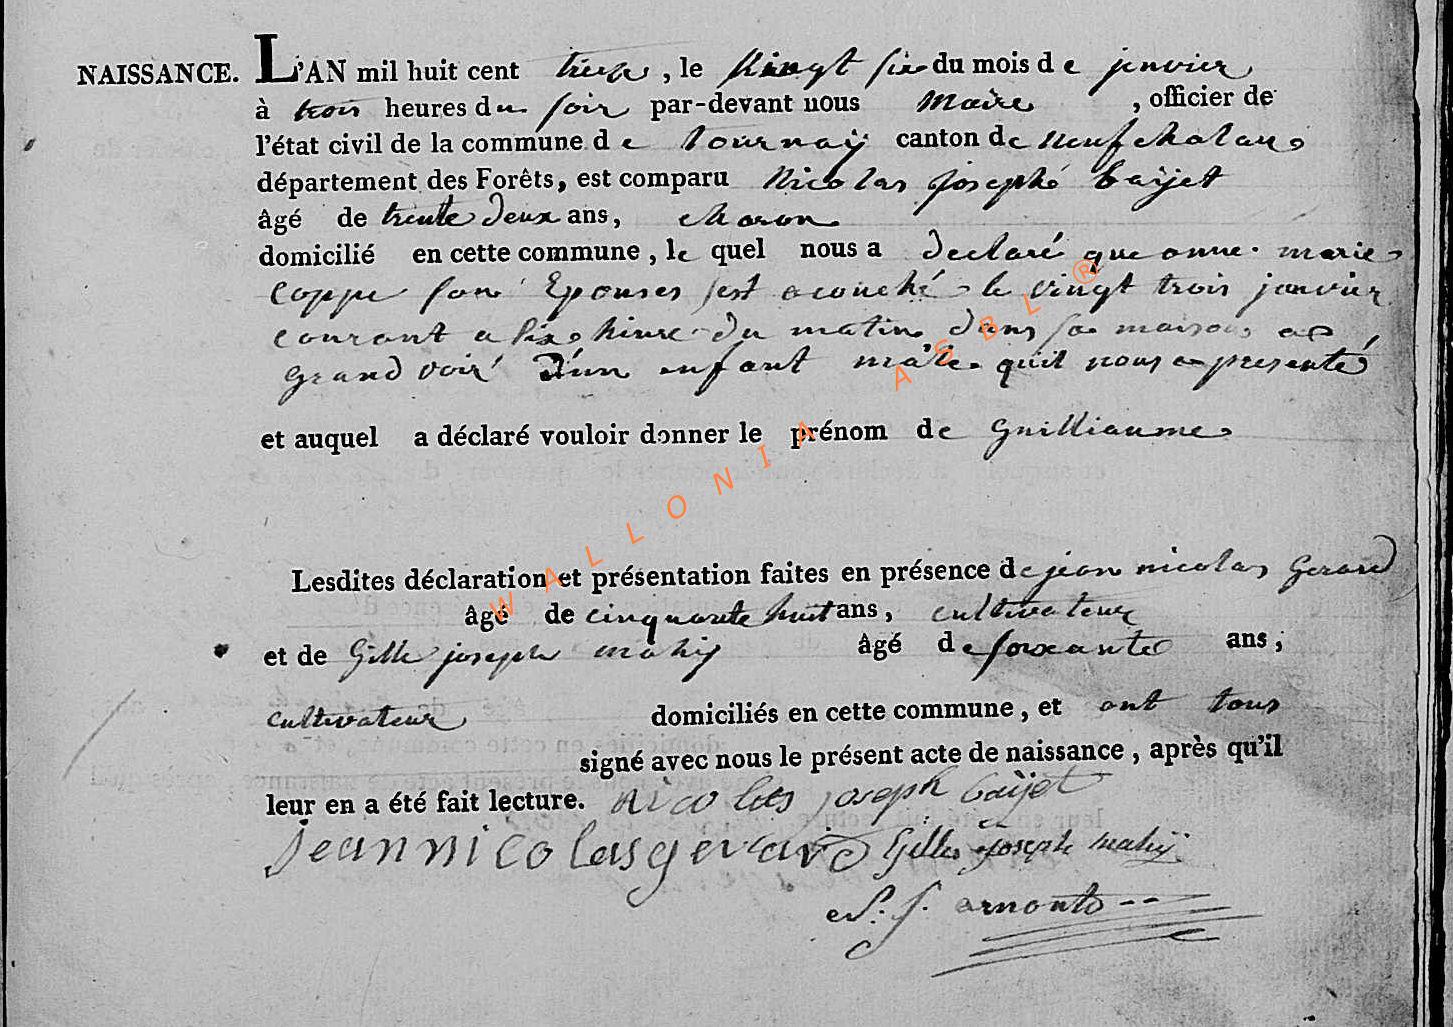 NAISSANCE. L'AN mil huit cent treize, le vingt six du mois de janvier
à trois heures du soir par-devant nous Maire, officier de
l'état civil de la commune de tournay canton de neufchatau
département des Forêts, est comparu Nicolas Josephé baijet
âgé de trente deux ans, charon
domicilié en cette commune, le quel nous a declaré que anne. marie
coppe son Epouses sest acouché le vingt trois janvier
courant a six hiure du matin dans sa maison a
grand voir d'un enfant mâle quil nous a presenté
et auquel a déclaré vouloir donner le prénom de Guilliaume
Lesdites déclaration et présentation faites en présence de jean nicolas Gerard
âgé de cinquante huit ans, cultivateur
et de Gille joseph mahij âgé de soixante ans,
cultivateur domiciliés en cette commune, et ont tous
signé avec nous le présent acte de naissance, après qu'il
leur en a été fait lecture. Nicolas joseph baijet
Jean nicolas gerard Gilles joseph mahij
arnould
WALLONIA ASBL ®